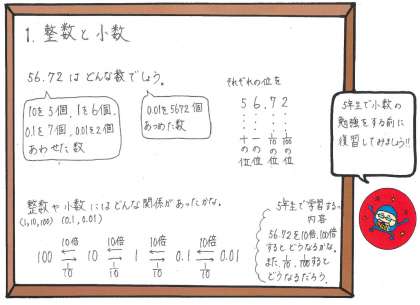 1. 整数と小数
56.72はどんな数でしょう。
10を5個、1を6個、
0.1を7個、0.01を2個
あわせた数
0.01を5672個
あつめた数
それぞれの位を
56.72
十の位
一の位
1/10の位
1/100の位
5年生で小数の
勉強をする前に
復習してみましょう!!
整数や小数にはどんな関係があったかな。
(1,10,100) (0.1, 0.01)
10倍 10倍 10倍 10倍
100 10 1 0.1 0.01
1/10 1/10 1/10 1/10
5年生で学習する
内容
56.72を10倍、100倍
するとどうなるかな。
また、1/10、1/100すると
どうなるだろう。